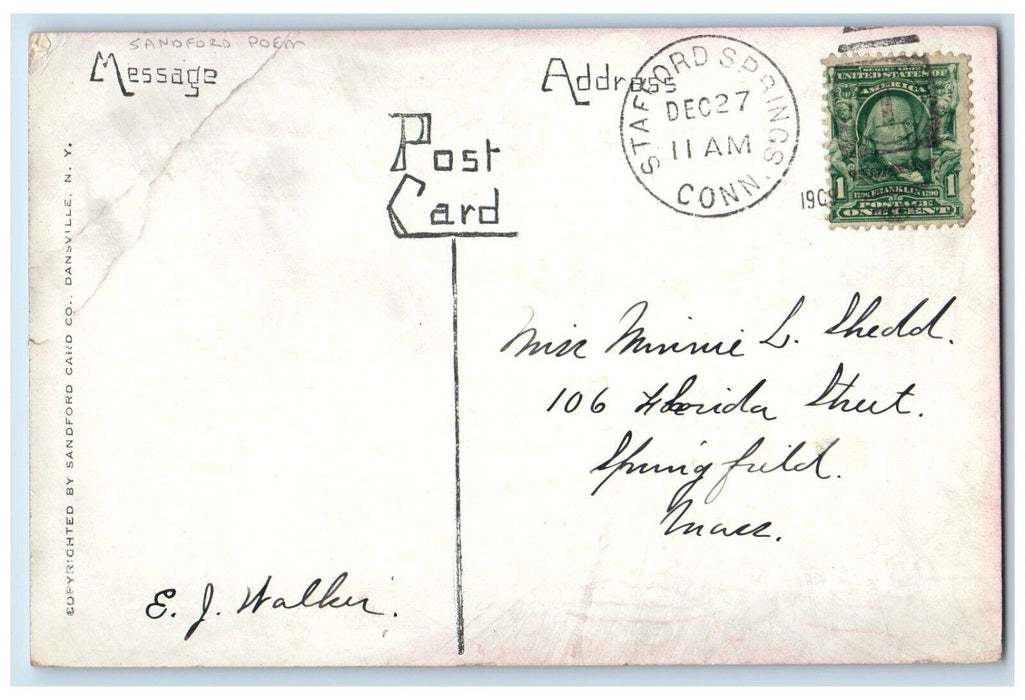 SANDFORD POEM
Message
Address
Post
Card
STAFFORD SPRINGS
DEC 27
11 AM
CONN.
190
SERIES 1902
UNITED STATES OF
AMERICA
1 FRANKLIN 1
POSTAGE
ONE CENT
COPYRIGHTED BY SANDFORD CARD CO., DANSVILLE, N. Y.
Miss Minnie L. Shedd.
106 Florida Street.
Springfield.
Mass.
E. J. Walker.